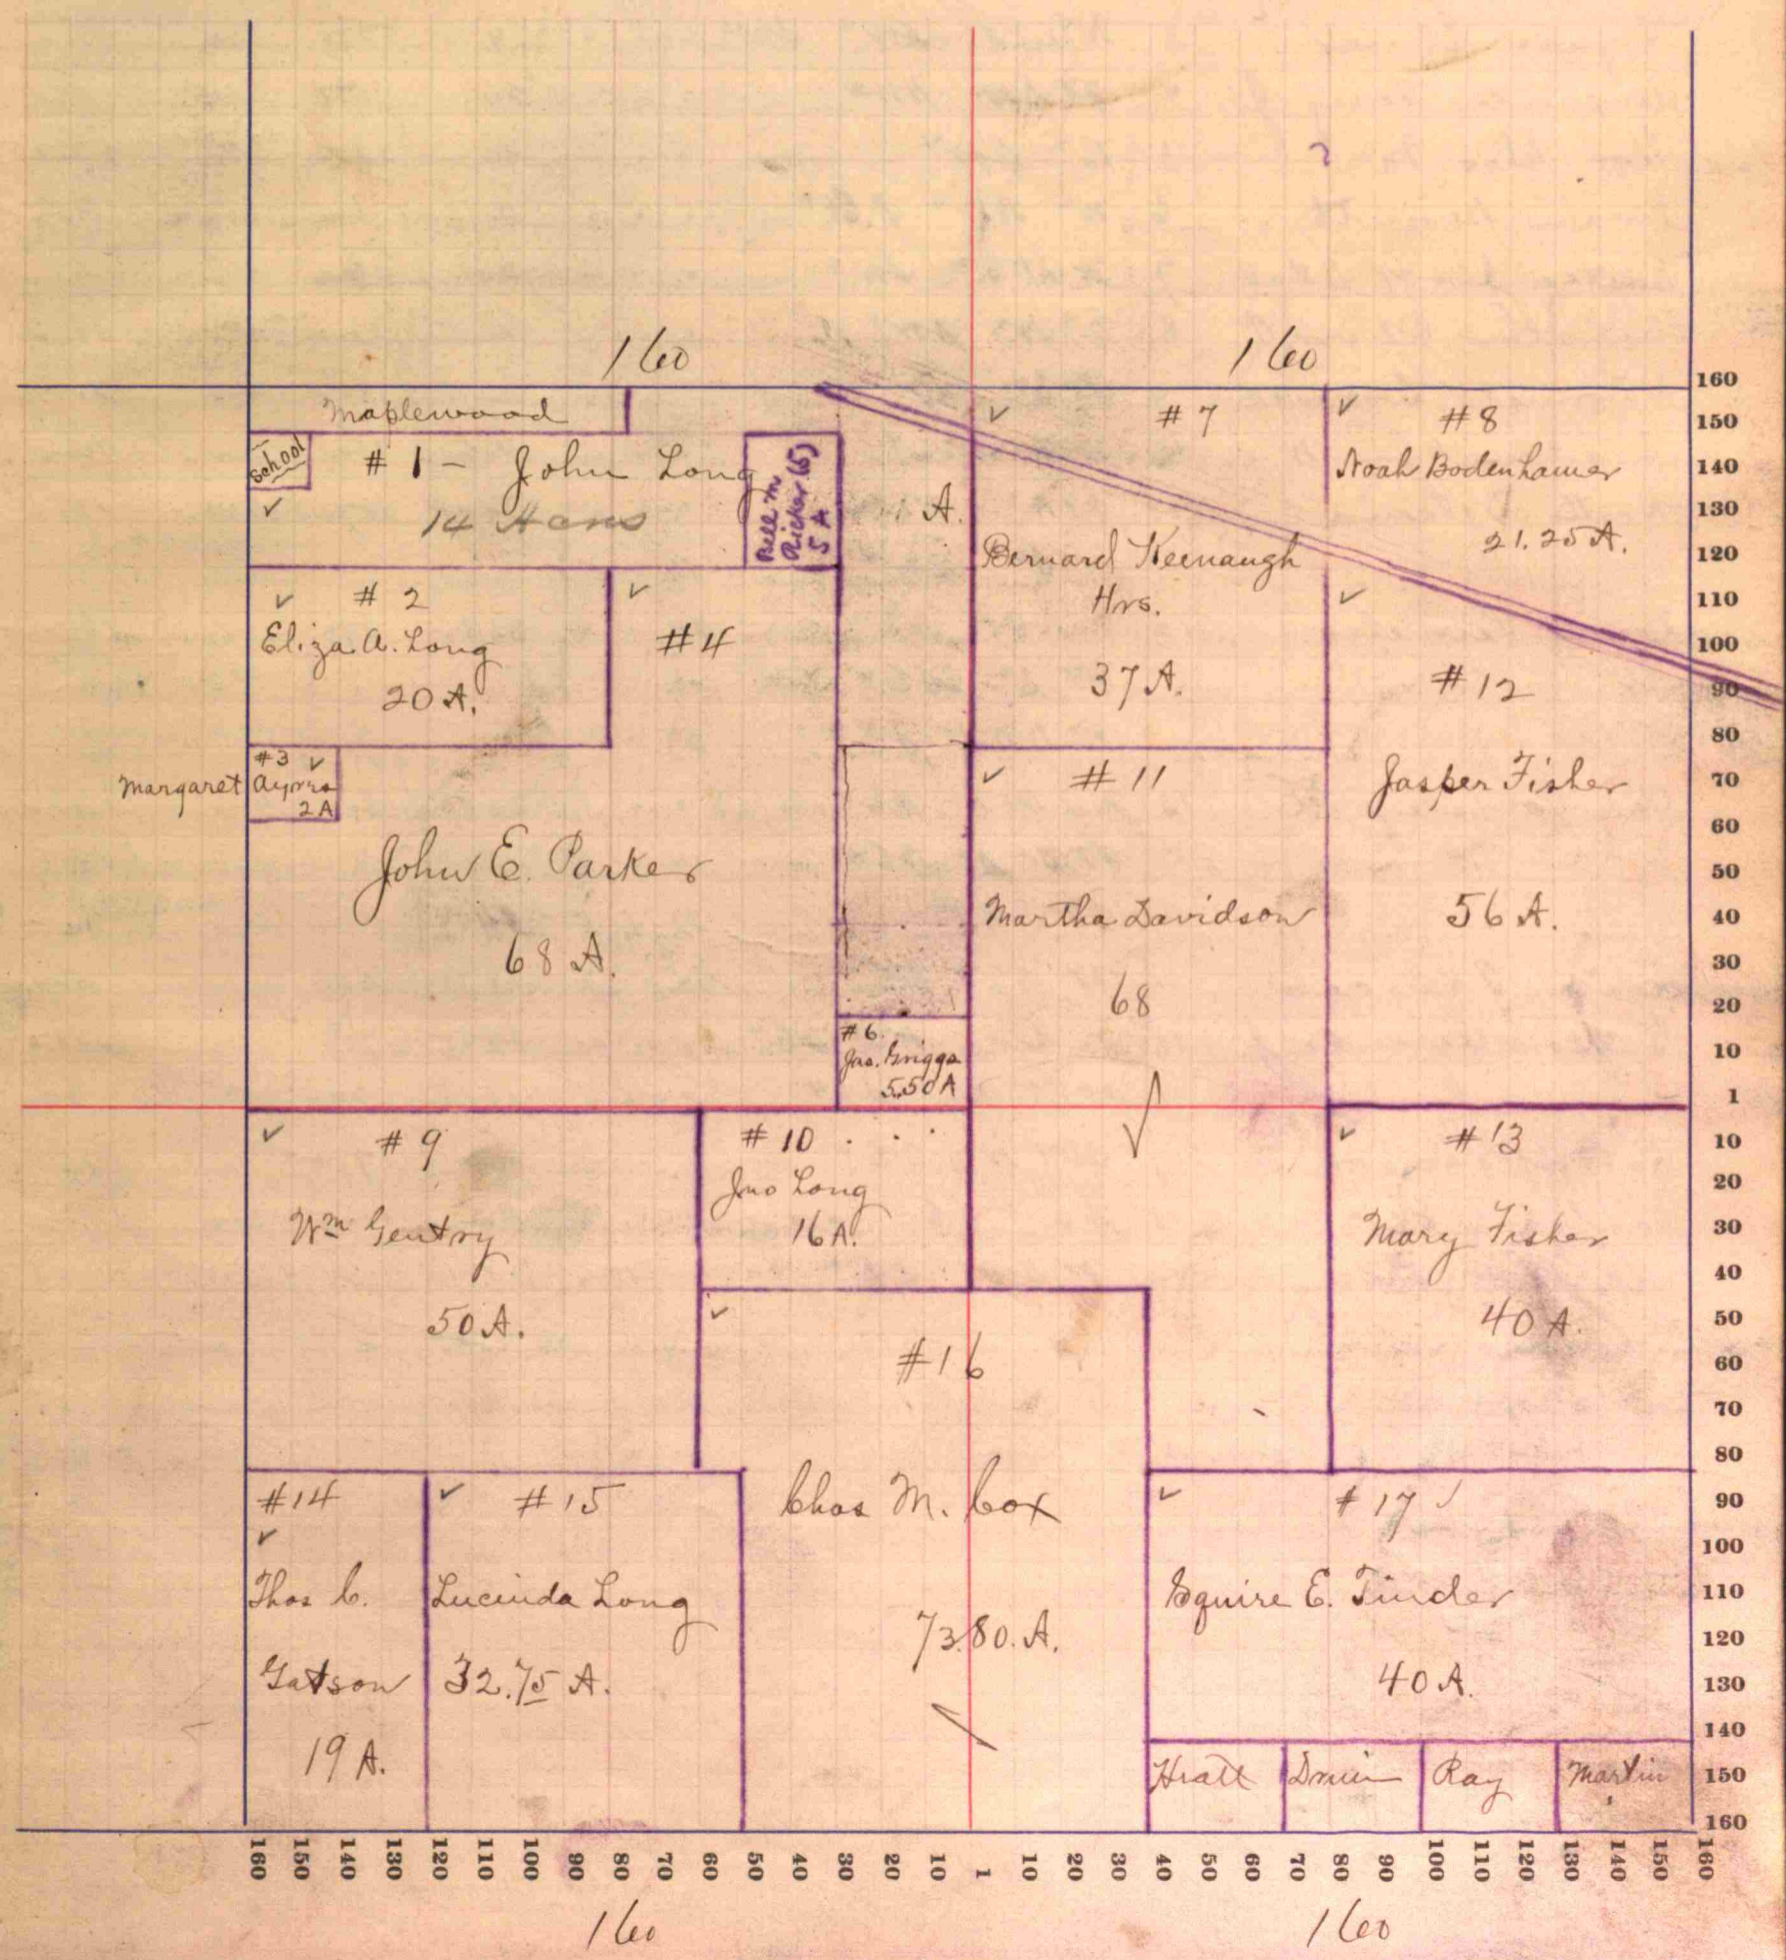 160
160
Maplewood
School
# 1 - John Long
14 Acres
Bell M
Ricker (5)
5 A
A.
# 7
Bernard Keenaugh
Hrs.
37 A.
# 8
Noah Bodenhamer
21.25 A.
# 2
Eliza A. Long
20 A.
#4
# 3
Margaret
2 A
John E. Parker
68 A.
# 11
Martha Davidson
68
# 12
Jasper Fisher
56 A.
# 6.
Jas. Griggs
5.50 A
# 9
Wm Gentry
50 A.
# 10
Jno Long
16 A.
# 13
Mary Fisher
40 A.
#16
Chas M. Cox
73.80. A.
#14
Thos C.
Gatson
19 A.
# 15
Lucinda Long
32.75 A.
# 17
Squire E. Tinder
40 A.
Hiatt
Ray
Martin
160
150
140
130
120
110
100
90
80
70
60
50
40
30
20
10
1
10
20
30
40
50
60
70
80
90
100
110
120
130
140
150
160
160 150 140 130 120 110 100 90 80 70 60 50 40 30 20 10 1 10 20 30 40 50 60 70 80 90 100 110 120 130 140 150 160
160
160